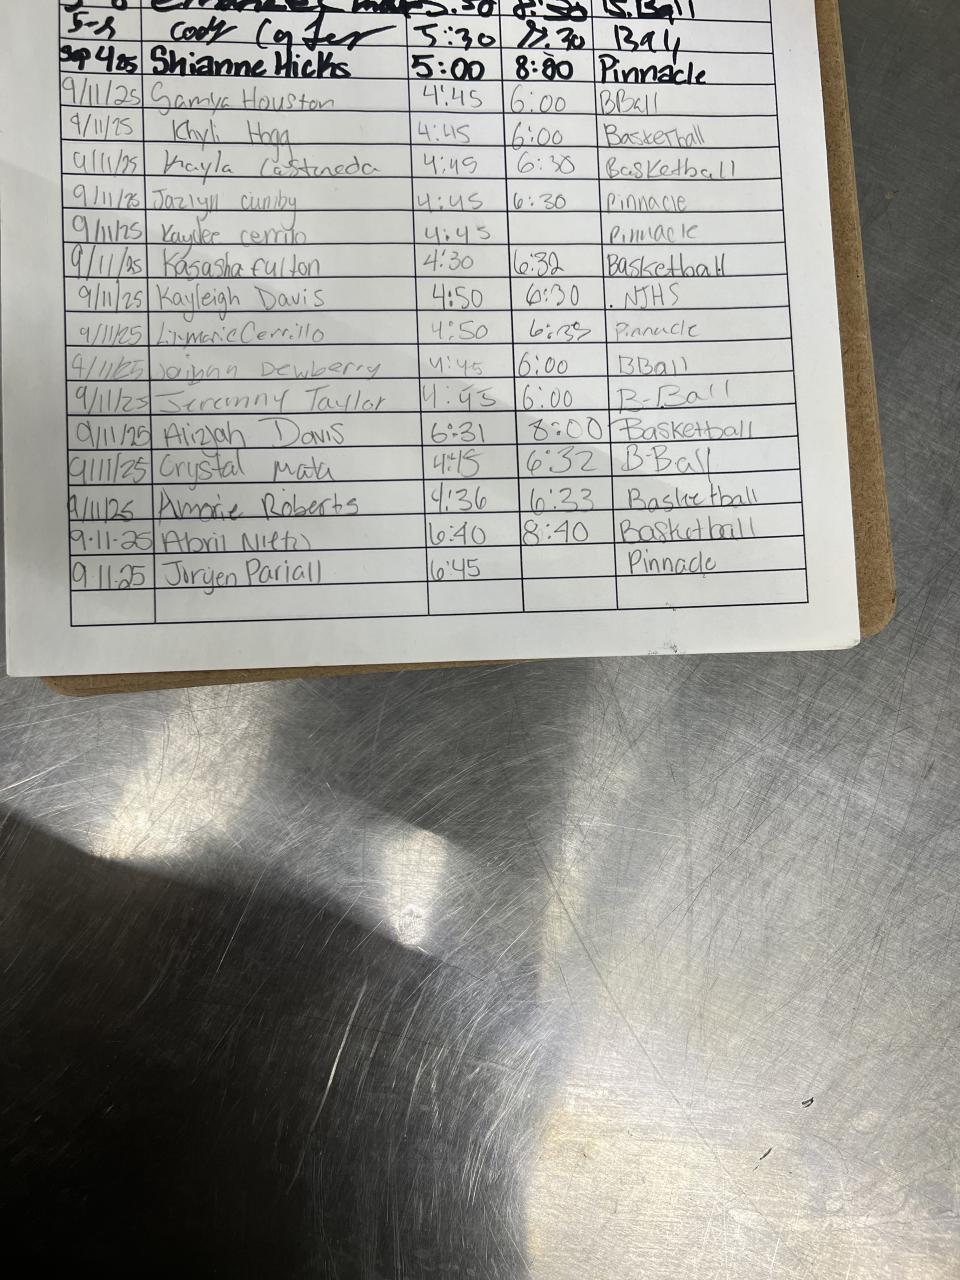 5:30 8:30 B.Ball
Cody Carter 5:30 Ball
Sep 4 25 Shianne Hicks 5:00 8:00 Pinnacle
9/11/25 Samya Houston 4:45 6:00 BBall
9/11/25 Khyli Hogg 4:45 6:00 Basketball
9/11/25 Kayla Castaneda 4:45 6:30 Basketball
9/11/25 Jazlyn cuniby 4:45 6:30 Pinnacle
9/11/25 Kaydee cerrillo 4:45 Pinnacle
9/11/25 Kasasha fulton 4:30 6:32 Basketball
9/11/25 Kayleigh Davis 4:50 6:30 NJHS
9/11/25 Cerrillo 4:50 Pinnacle
9/11/25 Dewberry 4:45 6:00 BBall
9/11/25 Jeremny Taylor 4:45 6:00 B-Ball
9/11/25 Alizah Davis 6:31 8:00 Basketball
9/11/25 Crystal Mata 4:45 6:32 B-Ball
9/11/25 Amorie Roberts 4:36 6:33 Basketball
9.11.25 Abril 6:40 8:40 Basketball
9.11.25 Jorgen Pariall 6:45 Pinnacle